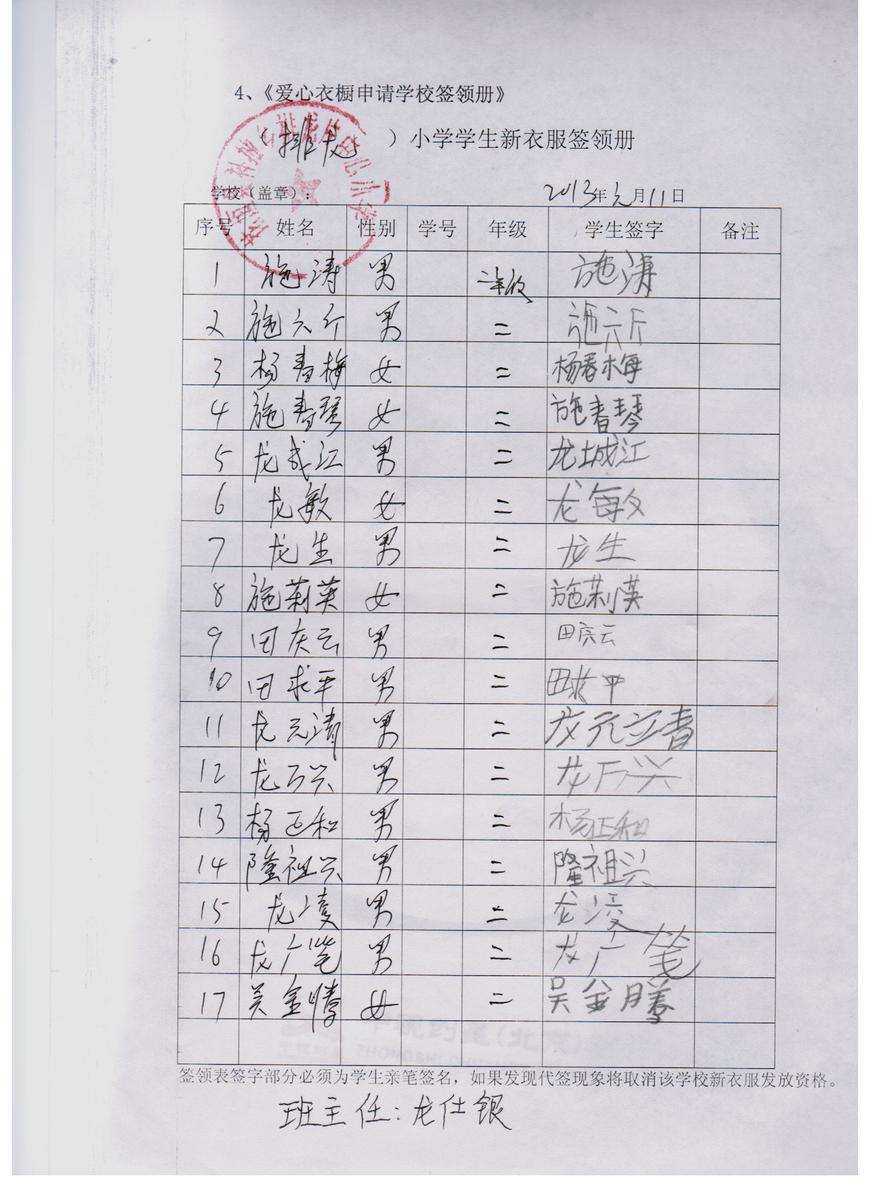 4、《爱心衣橱申请学校签领册》
（排龙）小学学生新衣服签领册
学校（盖章）： 2013年元月11日
序号 姓名 性别 学号 年级 学生签字 备注
1 施涛 男 二年级 施涛
2 施六斤 男 二 施六斤
3 杨春梅 女 二 杨春梅
4 施春琴 女 二 施春琴
5 龙成江 男 二 龙城江
6 龙敏 女 二 龙敏
7 龙生 男 二 龙生
8 施莉英 女 二 施莉英
9 田庆云 男 二 田庆云
10 田求平 男 二 田求平
11 龙元清 男 二 龙元清
12 龙万兴 男 二 龙万兴
13 杨正和 男 二 杨正和
14 隆祖兴 男 二 隆祖兴
15 龙凌 男 二 龙凌
16 龙广笔 男 二 龙广笔
17 吴金 女 二 吴金
签领表签字部分必须为学生亲笔签名，如果发现代签现象将取消该学校新衣服发放资格。
班主任：龙仕银